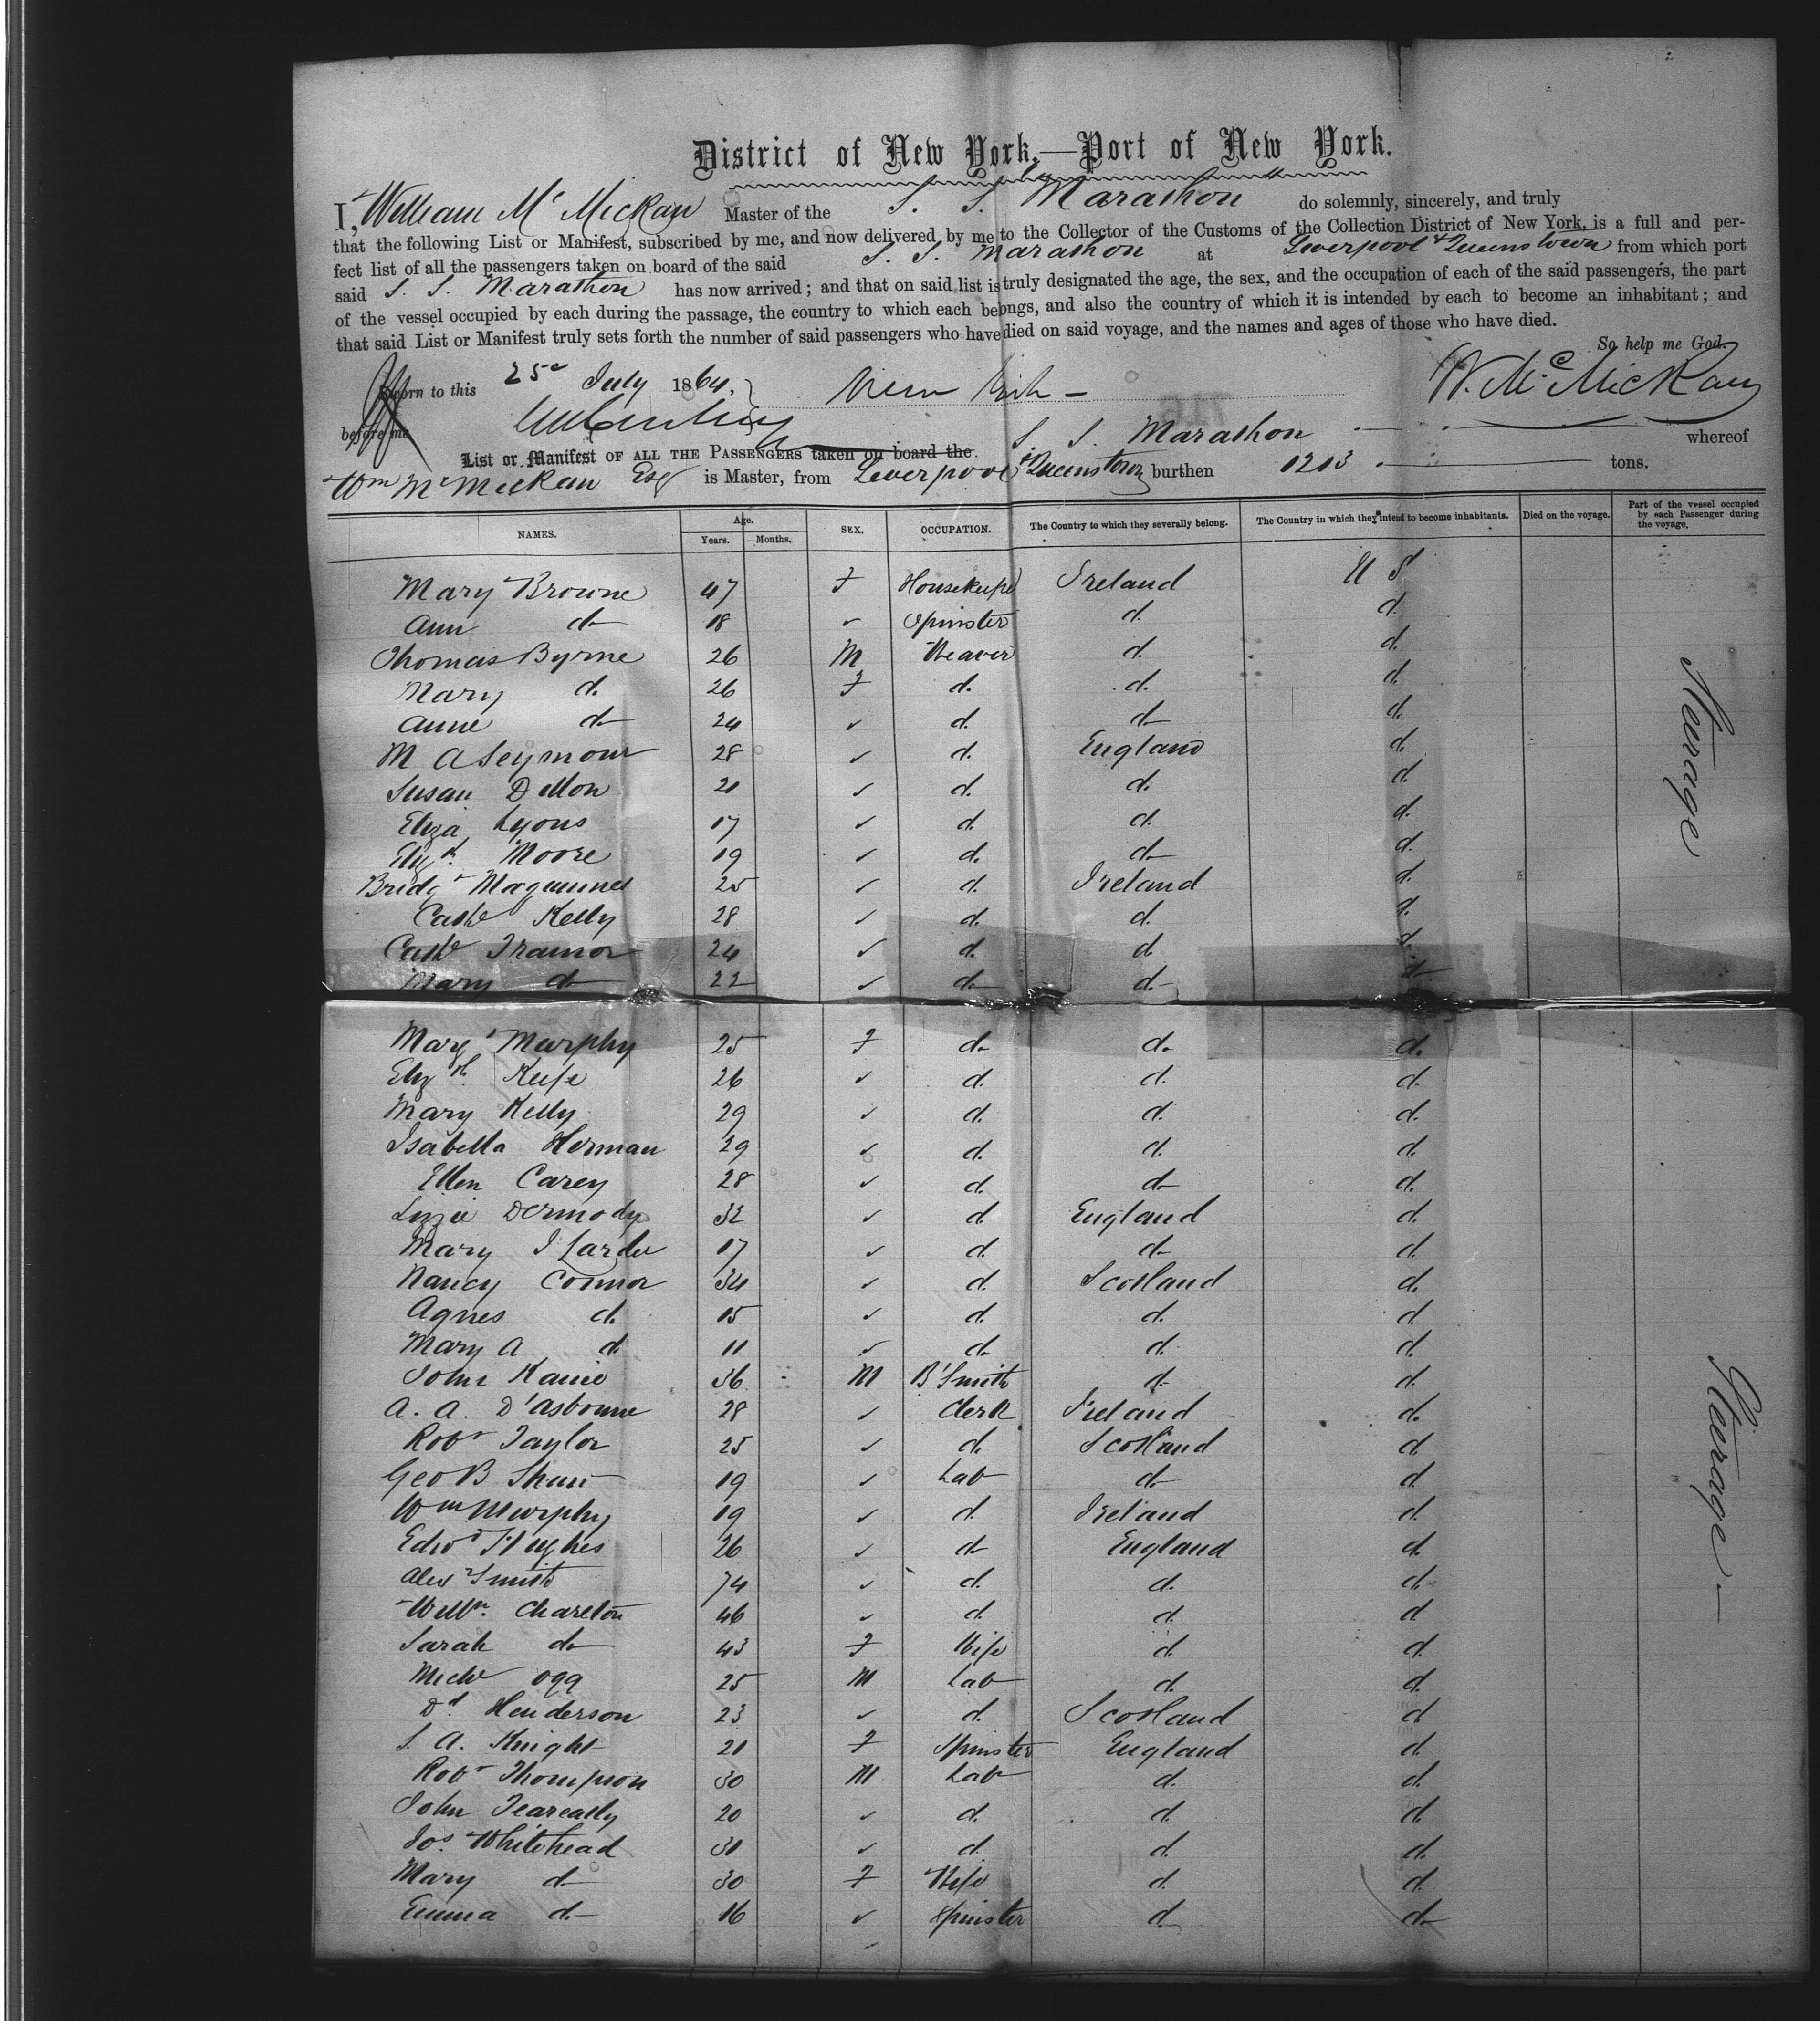 District of New York,—Port of New York.
I, William Mc Mickan Master of the S. S. Marathon do solemnly, sincerely, and truly
that the following List or Manifest, subscribed by me, and now delivered by me to the Collector of the Customs of the Collection District of New York, is a full and per-
fect list of all the passengers taken on board of the said S. S. Marathon at Liverpool & Queenstown from which port
said S. S. Marathon has now arrived; and that on said list is truly designated the age, the sex, and the occupation of each of the said passengers, the part
of the vessel occupied by each during the passage, the country to which each belongs, and also the country of which it is intended by each to become an inhabitant; and
that said List or Manifest truly sets forth the number of said passengers who have died on said voyage, and the names and ages of those who have died.
So help me God.
Sworn to this 25 July 1864. W. McMickan
before me
List or Manifest OF ALL THE PASSENGERS taken on board the S. S. Marathon whereof
Wm McMickan Esq is Master, from Liverpool & Queenstown burthen 1213 tons.
NAMES. Age. Years. Months. SEX. OCCUPATION. The Country to which they severally belong. The Country in which they intend to become inhabitants. Died on the voyage. Part of the vessel occupied by each Passenger during the voyage.
Mary Browne 47 F Housekeeper Ireland U S
Ann do 18 ✓ Spinster d. d.
Thomas Byrne 26 M Weaver d. d.
Mary d. 26 F d. d. d.
Anne do 24 ✓ d. do d.
M A Seymour 28 ✓ d. England d.
Susan Dillon 21 ✓ d. d. d.
Eliza Lyons 17 ✓ d. d. d.
Elizth Moore 19 ✓ d. do d.
Bridgt 25 ✓ d. Ireland d.
Cathe Kelly 28 ✓ d. d. d.
Cathe Trainor 24 ✓ d. d d.
Mary do 22 ✓ do d. do
Steerage
Margt Murphy 25 F do do d.
Elizth Keefe 26 ✓ d. d. d.
Mary Kelly 29 ✓ d. d. d.
Isabella Herman 29 ✓ d. d. d.
Ellen Carey 28 ✓ d. do d.
Lizzie Dermody 32 ✓ d England d.
Mary 17 ✓ d. do d.
Nancy Connor 34 ✓ d. Scotland d.
Agnes d. 15 ✓ d. d. d
Mary A d 11 ✓ do d. d.
John 36 M B'Smith d. d.
A. A. D'Asbourne 28 ✓ Clerk Ireland d.
Robt Taylor 25 ✓ d. Scotland d.
Geo B Shaw 19 ✓ Lab do d.
Wm Murphy 19 ✓ d. Ireland d.
Edwd Hughes 26 ✓ do England d.
Alex Smith 74 ✓ d. d. d.
Willm. Charlton 46 ✓ d. d. d
Sarah do 43 F Wife d. d.
Michl Ogg 25 M Lab d. d.
Dd Henderson 23 ✓ d. Scotland d
S. A. Knight 21 F Spinster England d.
Robt Thompson 30 M Lab d. d.
John 20 ✓ d. d. d.
Jos Whitehead 31 ✓ d. d. d.
Mary do 30 F Wife d. d.
Emma do 16 ✓ Spinster d. do
✓
Steerage